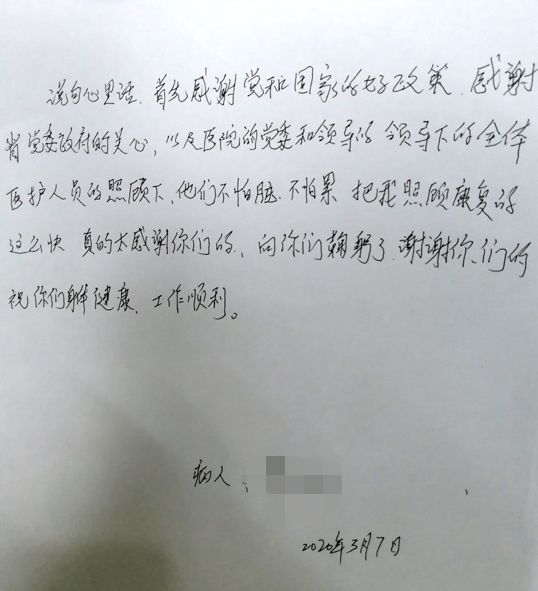 说句心里话.首先感谢党和国家的好政策.感谢
省党委政府的关心,以及医院的党委和领导的领导下的全体
医护人员的照顾下,他们不怕脏.不怕累 把我照顾康复的
这么快 真的太感谢你们的,向你们鞠躬了.谢谢你们的
祝你们身体健康、工作顺利。
病人:
2020年3月7日